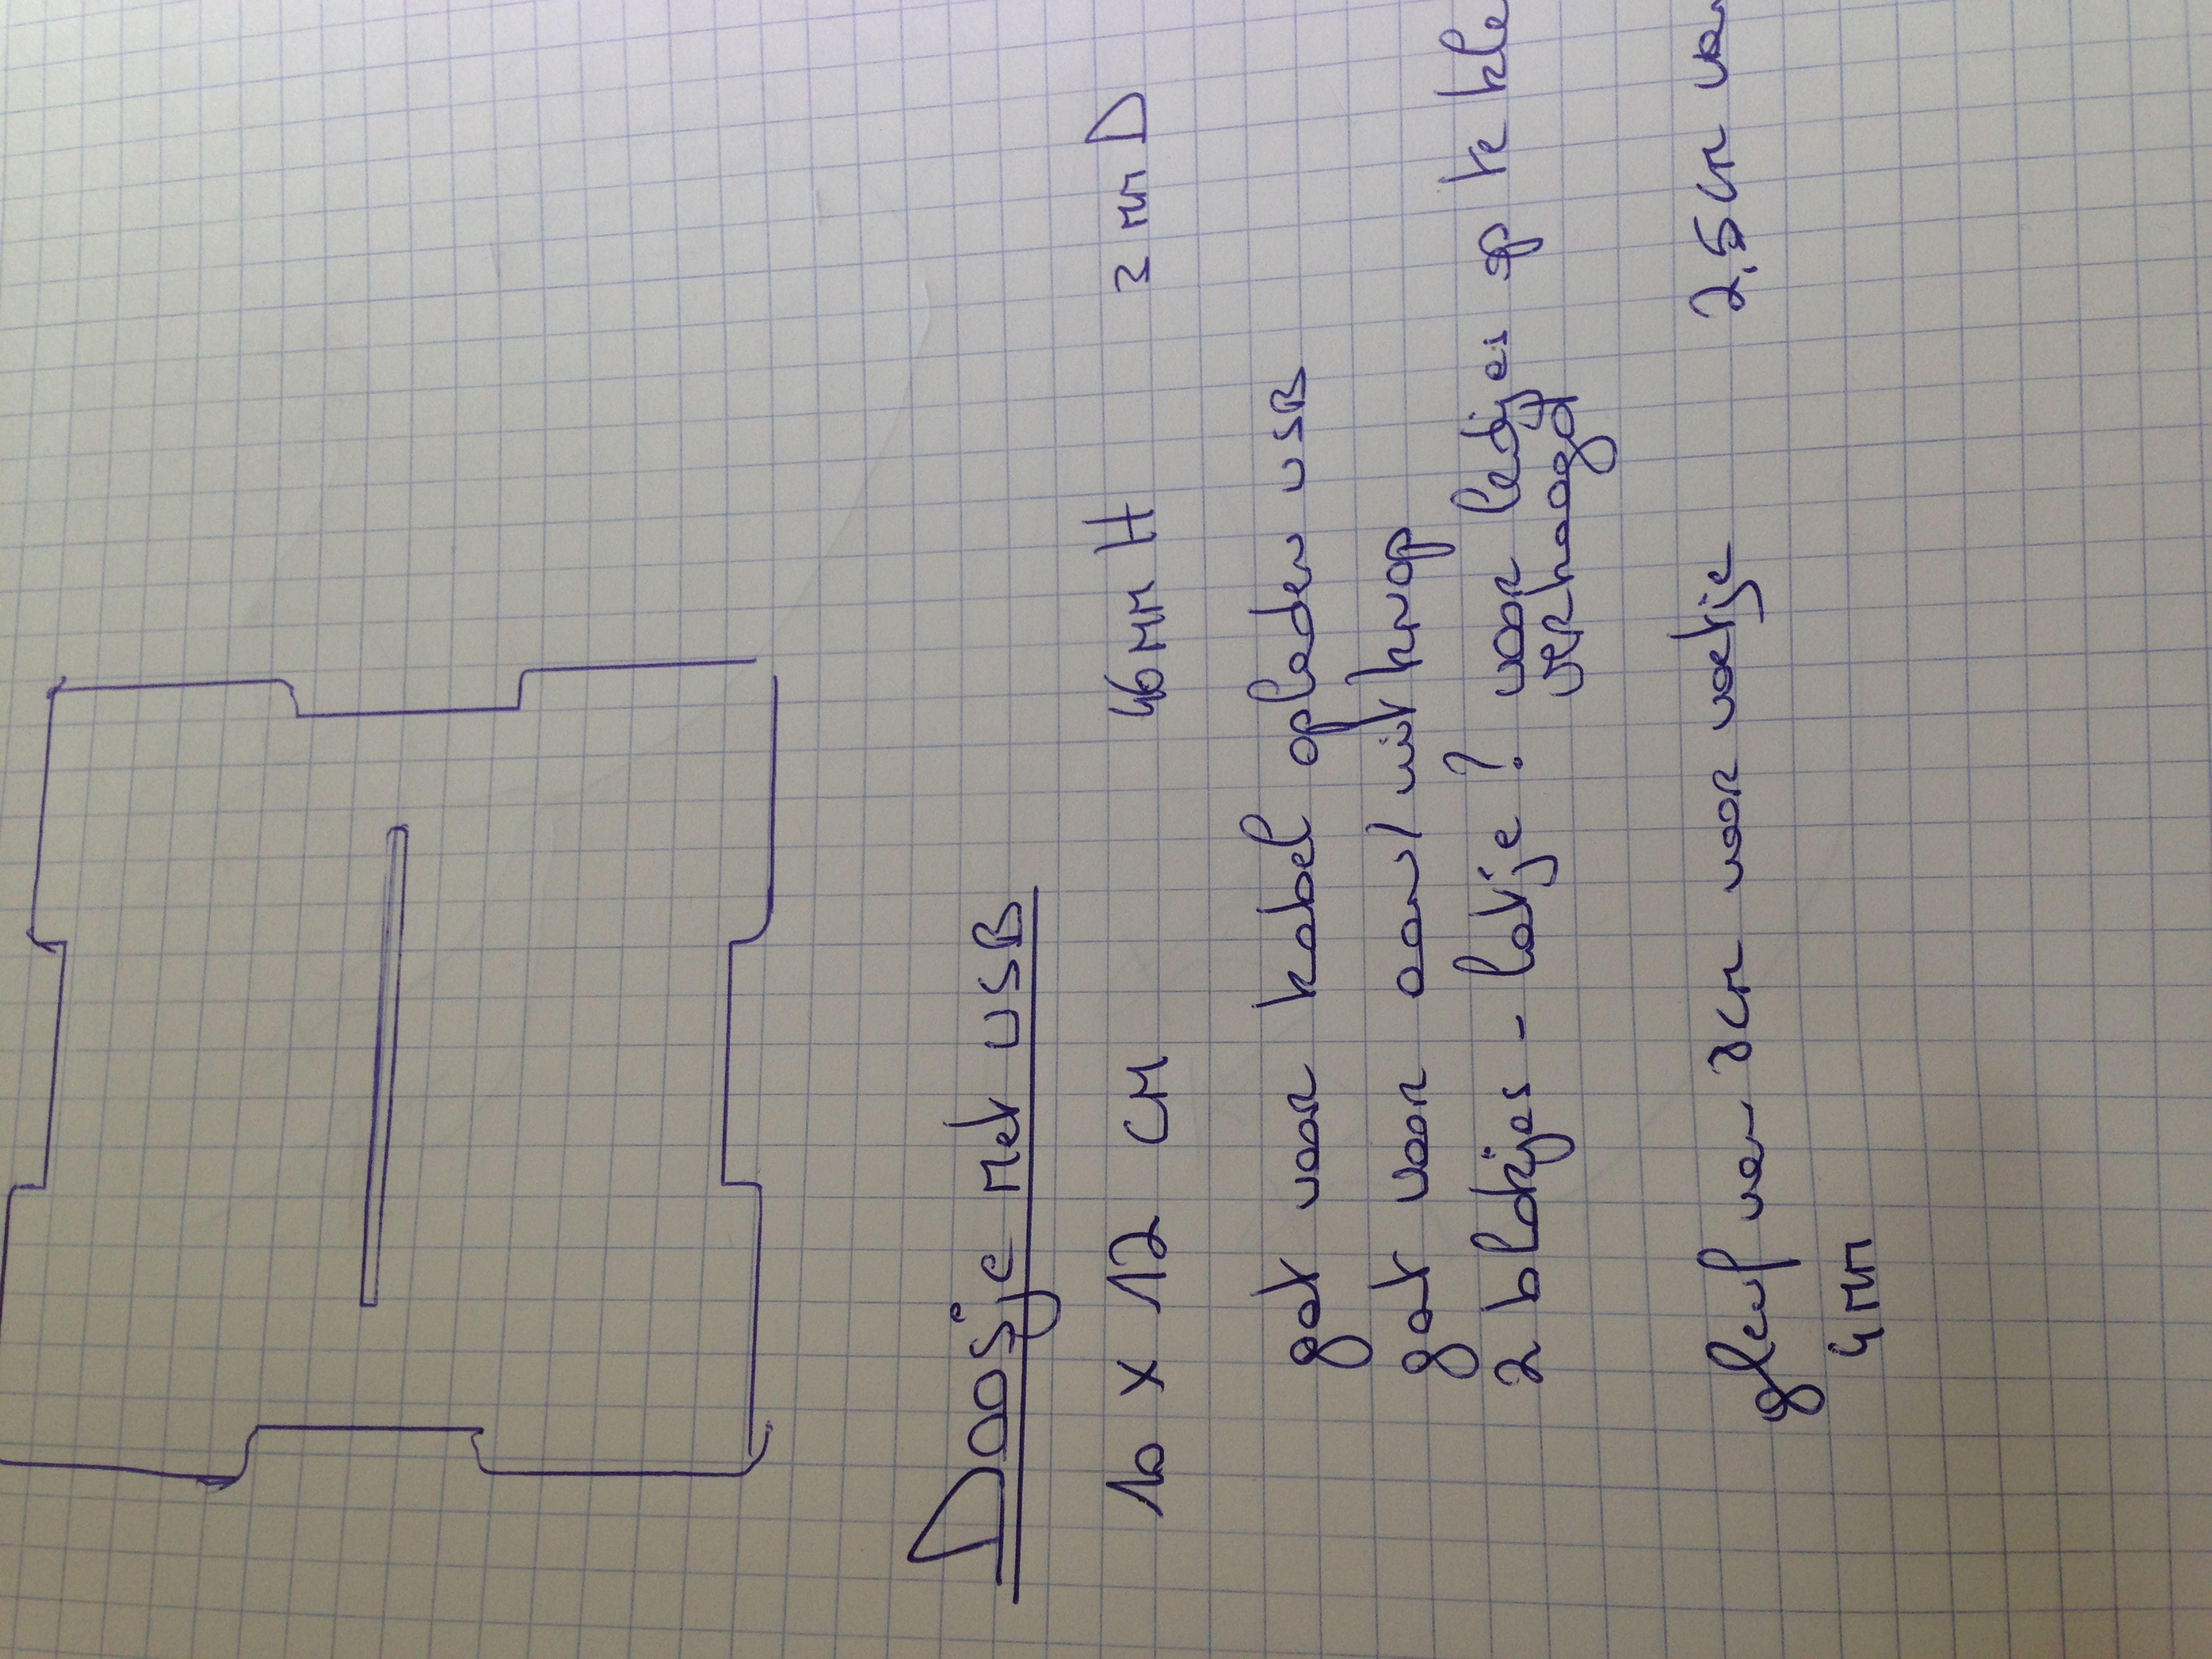 Doosje met USB
10 x 12 cm 46 mm H 2 mm D
gat voor kabel opladen USB
gat voor aan/uit knop
2 blokjes - latje? voor ledjes op te kle
verhoogd
gleuf van 8cm voor voetje 2,5cm van
4mm